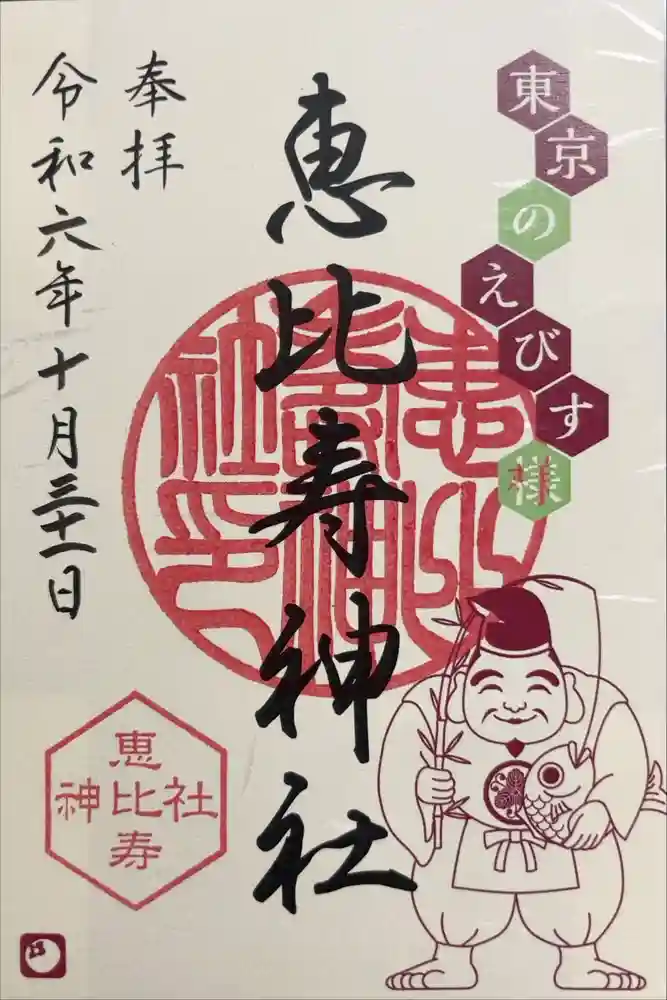 東京のえびす様
恵比寿神社
奉拝
令和六年十月三十一日
恵比寿神社印
恵
神比社
寿